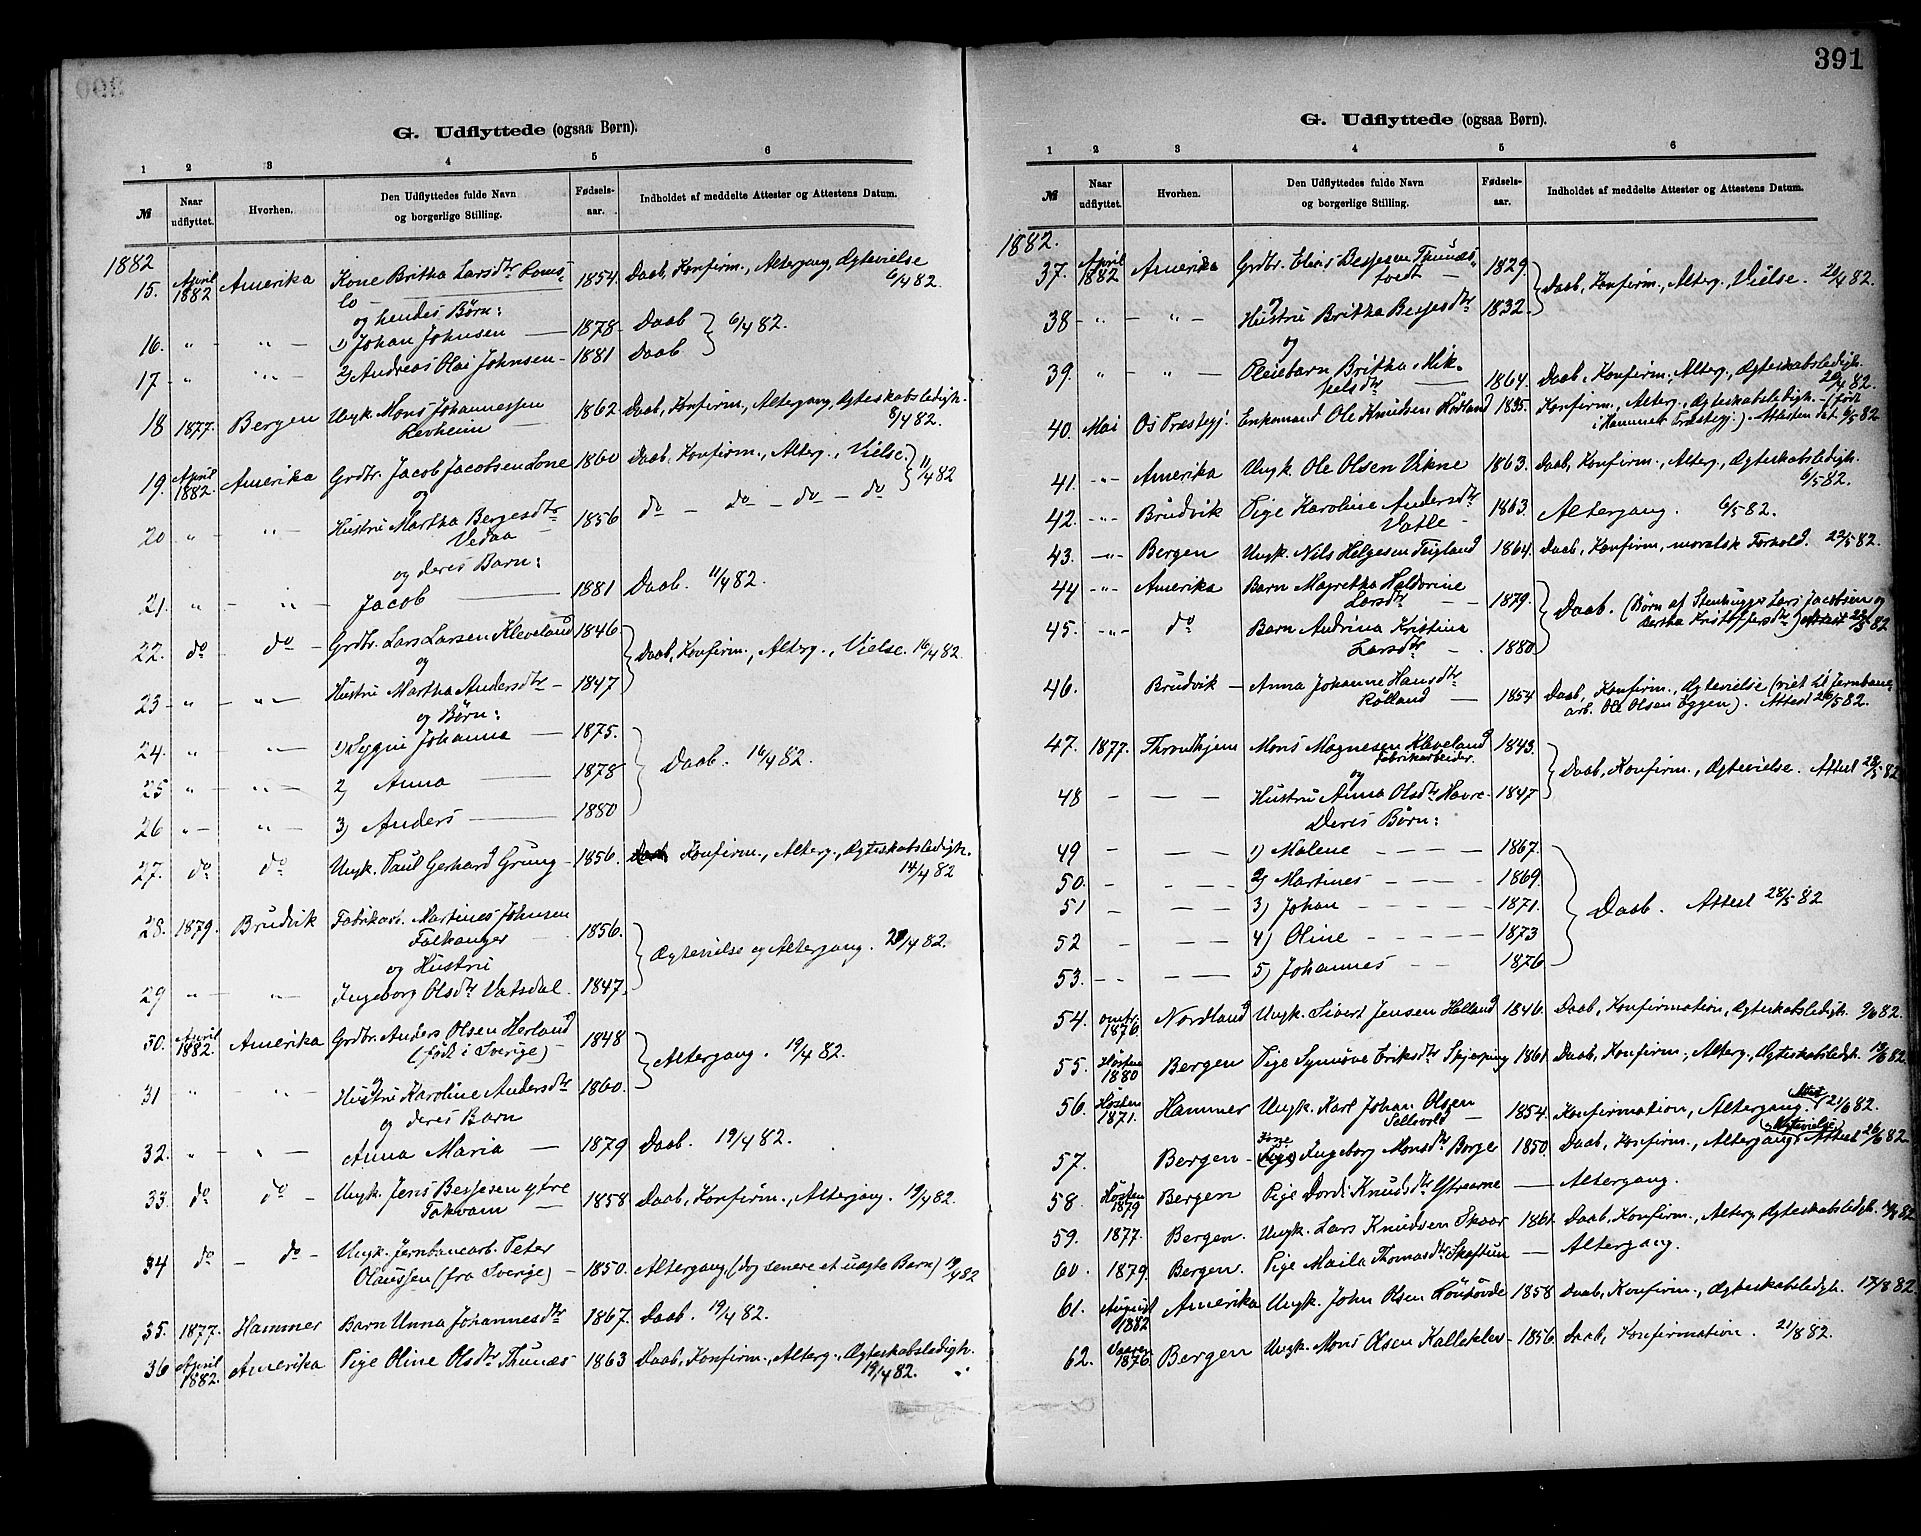 G. Udflyttede (ogsaa Børn).
1 2 3 4 5 6
№ Naar udflyttet. Hvorhen. Den Udflyttedes fulde Navn og borgerlige Stilling. Fødsels-aar. Indholdet af meddelte Attester og Attestens Datum.
1882
15. April 1882 Amerika Kone Britha Larsdtr Roms- 1854. Daab, Konfirm., Altergang, Ægtevielse 6/4 82.
lo
og hendes Børn:
16. " - " - 1) Johan Johnsen — 1878. Daab } 6/4 82.
17 - " " - 2) Andreas Olai Johnsen - 1881 Daab
18 1877. Bergen Ungk. Mons Johannessen 1862. Daab, Konfirm., Altergang, Ægteskabsledigh.
Revheim — 8/4 82.
19. April 1882. Amerika Grdbr. Jacob Jacobsen Lone 1860 Daab, Konfirm., Alterg., Vielse. } 11/4 82
og
20 " - " - Hustru Martha Bergesdtr 1856 do - do - do - do
Vedaa
og deres Barn:
21. " - " - Jacob — 1881 Daab. 11/4 82.
22. do do - Grdbr. Lars Larsen Kleveland 1846. } Daab, Konfirm., Alterg., Vielse. 16/4 82.
og
23 - " - " - Hustru Martha Andersdtr - 1847
og Børn:
24. " " - 1) Johanna — 1875. } Daab. 16/4 82.
25 " - " - 2) Anna — 1878
26 " - " - 3) Anders — 1880
27. do do Ungk. Paul Gerhard Grung - 1856. Konfirm., Alterg., Ægteskabsledigh.
14/4 82
28. 1879. Brudvik Fabrikarb. Martines Johnsen
Falkanger — 1856. } Ægtevielse og Altergang. 29/4 82.
og Hustru
29 " - " - Ingeborg Olsdtr Vatsdal. 1847.
30. April 1882. Amerika Grdbr. Anders Olsen Herland 1848 } Altergang. 19/4 82.
(født i Sverige) -
og
31 " - " - Hustru Karoline Andersdtr 1860.
og deres Barn
32. " - " - Anna Maria — 1879 Daab. 19/4 82.
33. do do - Ungk. Jens Bessesen ytre 1858 Daab, Konfirm., Altergang. 19/4 82.
Takvam —
34 do - do - Ungk. Jernbanearb. Peter
Olaussen (fra Sverige) - 1850. Altergang (dog senere et uægte Barn) 19/4 82
35. 1877. Hammer Barn Unna Johannesdtr 1867. Daab. 19/4 82.
36 April 1882. Amerika Pige Oline Olsdtr Thunæs 1863 Daab, Konfirm., Alterg., Ægteskabsledigh.
19/4 82.
391
G. Udflyttede (ogsaa Børn).
1 2 3 4 5 6
№ Naar udflyttet. Hvorhen. Den Udflyttedes fulde Navn og borgerlige Stilling. Fødsels-aar. Indholdet af meddelte Attester og Attestens Datum.
1882.
37. April 1882 Amerika Grdbr. Elias Bessesen Thunæs- 1829. } Daab, Konfirm., Alterg., Vielse. 20/4 82.
tvedt —
og
38 " - " - Hustru Britha Bergesdtr 1832.
og
39. " - " - Pleiebarn Britha Mik-
kelsdtr — 1864. Daab, Konfirm., Alterg., Ægteskabsledigh.
20/4 82.
40. Mai Os Præstegj. Enkemand Ole Knudsen Rødland 1835. Konfirm., Alterg., Ægteskabsledigh. (født
i Hammer Præstegj.) Attesten dat. 6/5 82
41. " - Amerika Ungk. Ole Olsen Vikne 1863. Daab, Konfirm., Alterg., Ægteskabsledigh.
6/5 82.
42. " - Brudvik Pige Karoline Andersdtr 1863. Altergang. 6/5 82.
Vatle -
43. " - Bergen Ungk. Nils Helgesen Teigland 1864. Daab, Konfirm., moralsk Forhold. 22/5 82.
44 " - Amerika Barn Magretha Haldorine
Larsdtr - 1879. } Daab. (Børn af Stenhugger Lars Jacobsen og
Bertha Kristoffersdtr) Attest 22/5 82
45. " - do Barn Andrina Kristina
Larsdtr - 1880
46. Brudvik - Anna Johanne Hansdtr
Rølland — 1854 Daab, Konfirm., Ægtevielse (viet til Jernbane-
arb. Ole Olsen Eggen). Attest 26/5 82.
47. 1877. Throndhjem Mons Magnesen Kleveland 1843. } Daab, Konfirm., Ægtevielse. Attest 28/5 82
Fabrikarbeider.
og
48 - — Hustru Anna Olsdtr Havre - 1847
Deres Børn:
49 - — 1) Malene — 1867. } Daab. Attest 28/5 82
50. - — 2) Martines — 1869.
51 - — 3) Johan — 1871.
52 - — 4) Oline — 1873
53. - — 5) Johannes — 1876
54. omtr. 1876. Nordland Ungk. Sivert Jensen Helland 1846. Daab, Konfirmation, Ægteskabsledigh. 9/6 82.
55. Høsten 1880 Bergen Pige Synnøve Eriksdtr Skjerping 1861. Daab, Konfirm., Alterg., Ægteskabsledigh. 19/6 82.
56. Høsten 1871. Hammer Ungk. Karl Johan Olsen
Seltvold — 1854. Konfirmation, Altergang. Attest 21/6 82.
57. Bergen - Kone (Pige) Ingeborg Monsdtr Borge 1850. Daab, Konfirm., Altergang, (Ægtevielse) Attest 26/6 82.
58. Høsten 1879 Bergen Pige Dordi Knudsdtr Ytrearne — Altergang.
59. 1877. Bergen. Ungk. Lars Knudsen Skaar 1861. Daab, Konfirm., Alterg, Ægteskabsledigh.
60. 1879. Bergen. Pige Maila Thomasdtr Skaftun — Altergang.
61. August 1882 Amerika Ungk. John Olsen 1858 Daab, Konfirm., Ægteskabsledigh. 17/8 82.
62. Vaaren 1876 Bergen Ungk. Mons Olsen Kalleklev - 1856. Daab, Konfirmation. 21/8 82.